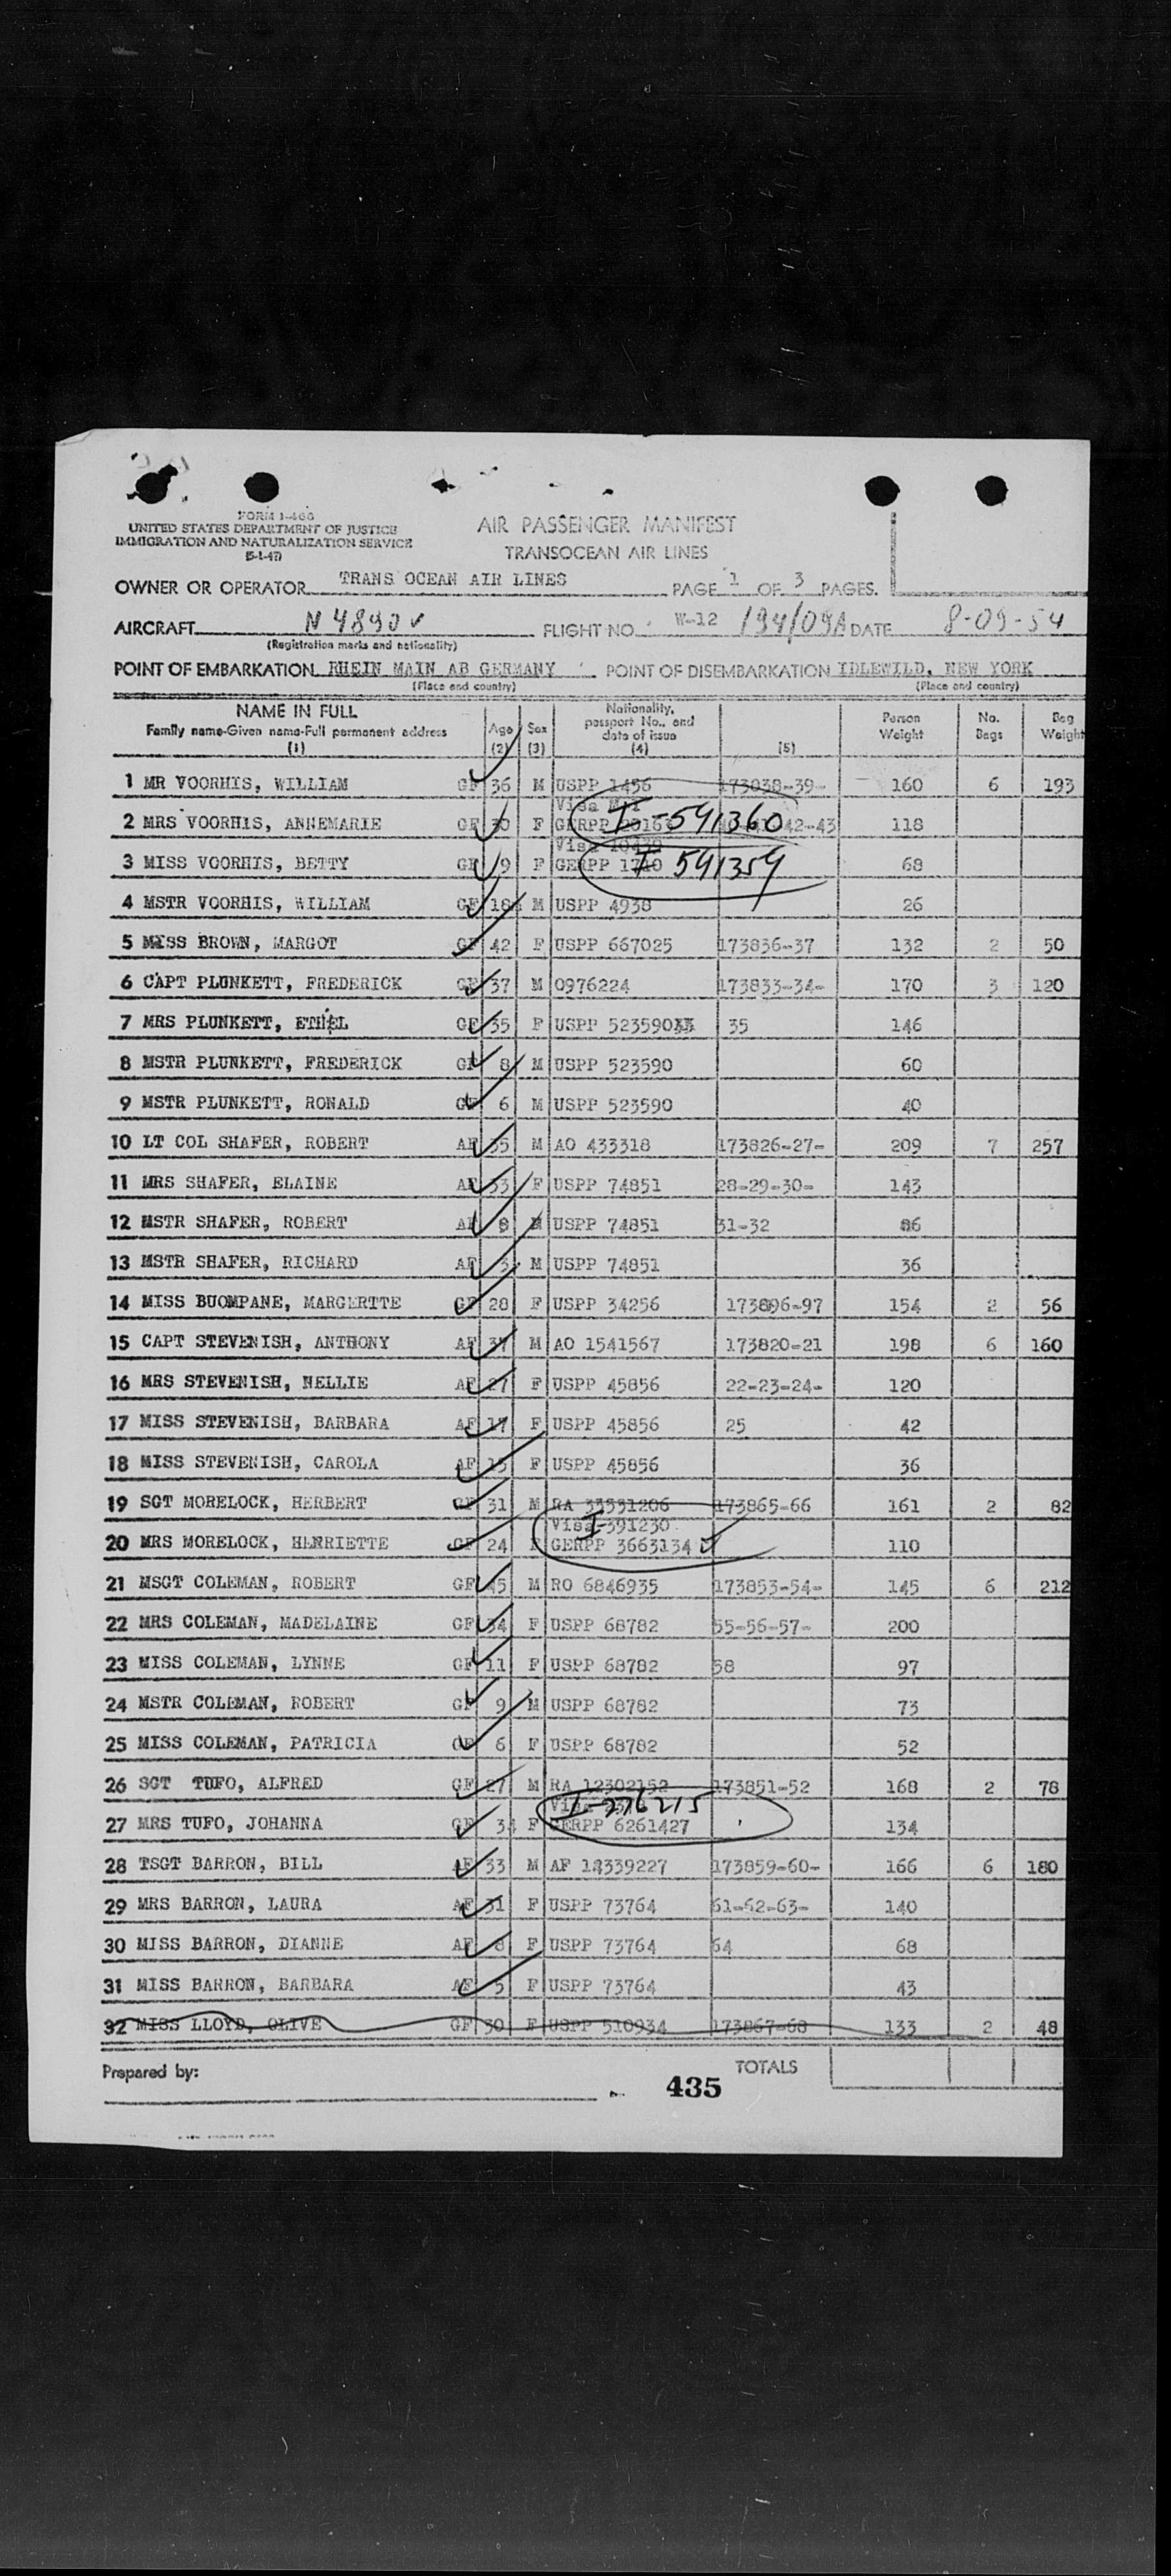 FORM I-466
UNITED STATES DEPARTMENT OF JUSTICE
IMMIGRATION AND NATURALIZATION SERVICE
(5-1-47)
AIR PASSENGER MANIFEST
TRANSOCEAN AIR LINES
OWNER OR OPERATOR TRANS OCEAN AIR LINES PAGE 1 OF 3 PAGES.
AIRCRAFT N 4890V FLIGHT NO. W-12 194/09A DATE 8-09-54
(Registration marks and nationality)
POINT OF EMBARKATION RHEIN MAIN AB GERMANY POINT OF DISEMBARKATION IDLEWILD, NEW YORK
(Place and country) (Place and country)
NAME IN FULL Age Sex Nationality, passport No., and date of issue Person Weight No. Bags Bag Weight
Family name-Given name-Full permanent address
(1) (2) (3) (4) (5)
1 MR VOORHIS, WILLIAM GF 36 M USPP 1456 173838-39- 160 6 193
2 MRS VOORHIS, ANNEMARIE GF 30 F Visa GERPP I-541360 42-43 118
3 MISS VOORHIS, BETTY GF 9 F Visa GERPP I 541359 68
4 MSTR VOORHIS, WILLIAM GF 18 M USPP 4938 26
5 MISS BROWN, MARGOT GF 42 F USPP 667025 173836-37 132 2 50
6 CAPT PLUNKETT, FREDERICK GF 37 M O976224 173833-34- 170 3 120
7 MRS PLUNKETT, ETHEL GF 35 F USPP 523590 35 146
8 MSTR PLUNKETT, FREDERICK GF 8 M USPP 523590 60
9 MSTR PLUNKETT, RONALD GF 6 M USPP 523590 40
10 LT COL SHAFER, ROBERT AF 35 M AO 433318 173826-27- 209 7 257
11 MRS SHAFER, ELAINE AF 33 F USPP 74851 28-29-30- 143
12 MSTR SHAFER, ROBERT AF 8 M USPP 74851 31-32 86
13 MSTR SHAFER, RICHARD AF 3 M USPP 74851 36
14 MISS BUOMPANE, MARGERTTE GF 28 F USPP 34256 173896-97 154 2 56
15 CAPT STEVENISH, ANTHONY AF 37 M AO 1541567 173820-21 198 6 160
16 MRS STEVENISH, NELLIE AF 27 F USPP 45856 22-23-24- 120
17 MISS STEVENISH, BARBARA AF 17 F USPP 45856 25 42
18 MISS STEVENISH, CAROLA AF 15 F USPP 45856 36
19 SGT MORELOCK, HERBERT GF 31 M RA 33531206 173865-66 161 2 82
20 MRS MORELOCK, HENRIETTE GF 24 F Visa I-391230 GERPP 3663134 110
21 MSGT COLEMAN, ROBERT GF 45 M RO 6846935 173853-54- 145 6 212
22 MRS COLEMAN, MADELAINE GF 34 F USPP 68782 55-56-57- 200
23 MISS COLEMAN, LYNNE GF 11 F USPP 68782 58 97
24 MSTR COLEMAN, ROBERT GF 9 M USPP 68782 73
25 MISS COLEMAN, PATRICIA GF 6 F USPP 68782 52
26 SGT TUFO, ALFRED GF 27 M RA 12302152 173851-52 168 2 78
27 MRS TUFO, JOHANNA GF 34 F Visa I-276215 GERPP 6261427 134
28 TSGT BARRON, BILL AF 33 M AF 14339227 173859-60- 166 6 180
29 MRS BARRON, LAURA AF 31 F USPP 73764 61-62-63- 140
30 MISS BARRON, DIANNE AF 8 F USPP 73764 64 68
31 MISS BARRON, BARBARA AF 5 F USPP 73764 43
32 MISS LLOYD, OLIVE GF 30 F USPP 510934 173867-68 133 2 48
Prepared by: 435 TOTALS